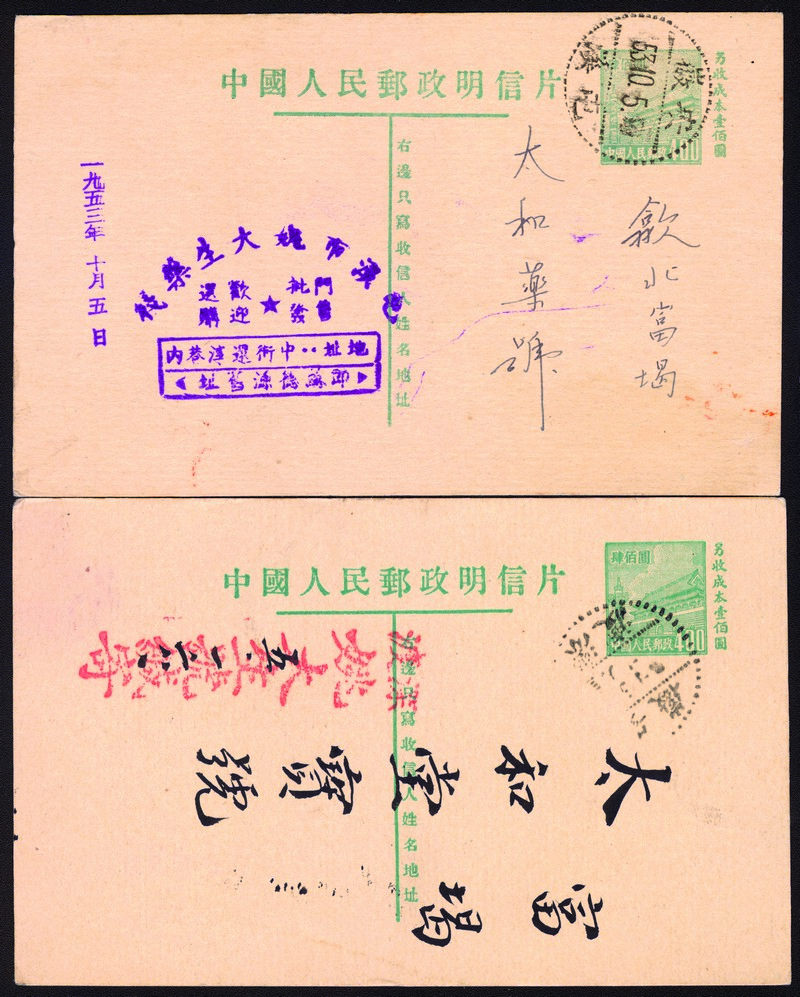 中國人民郵政明信片
另收成本壹佰圓
中國人民郵政 400
53.10.5
右邊只寫收信人姓名地址
歙北富堨
太和藥號
一九五三年十月五日
姚大生藥
歡迎
選購
門售
批發
地址:中街還淳巷内
中國人民郵政明信片
另收成本壹佰圓
肆佰圓
中國人民郵政 400
右邊只寫收信人姓名地址
富堨
太和堂寶號
姚大生
五、二六